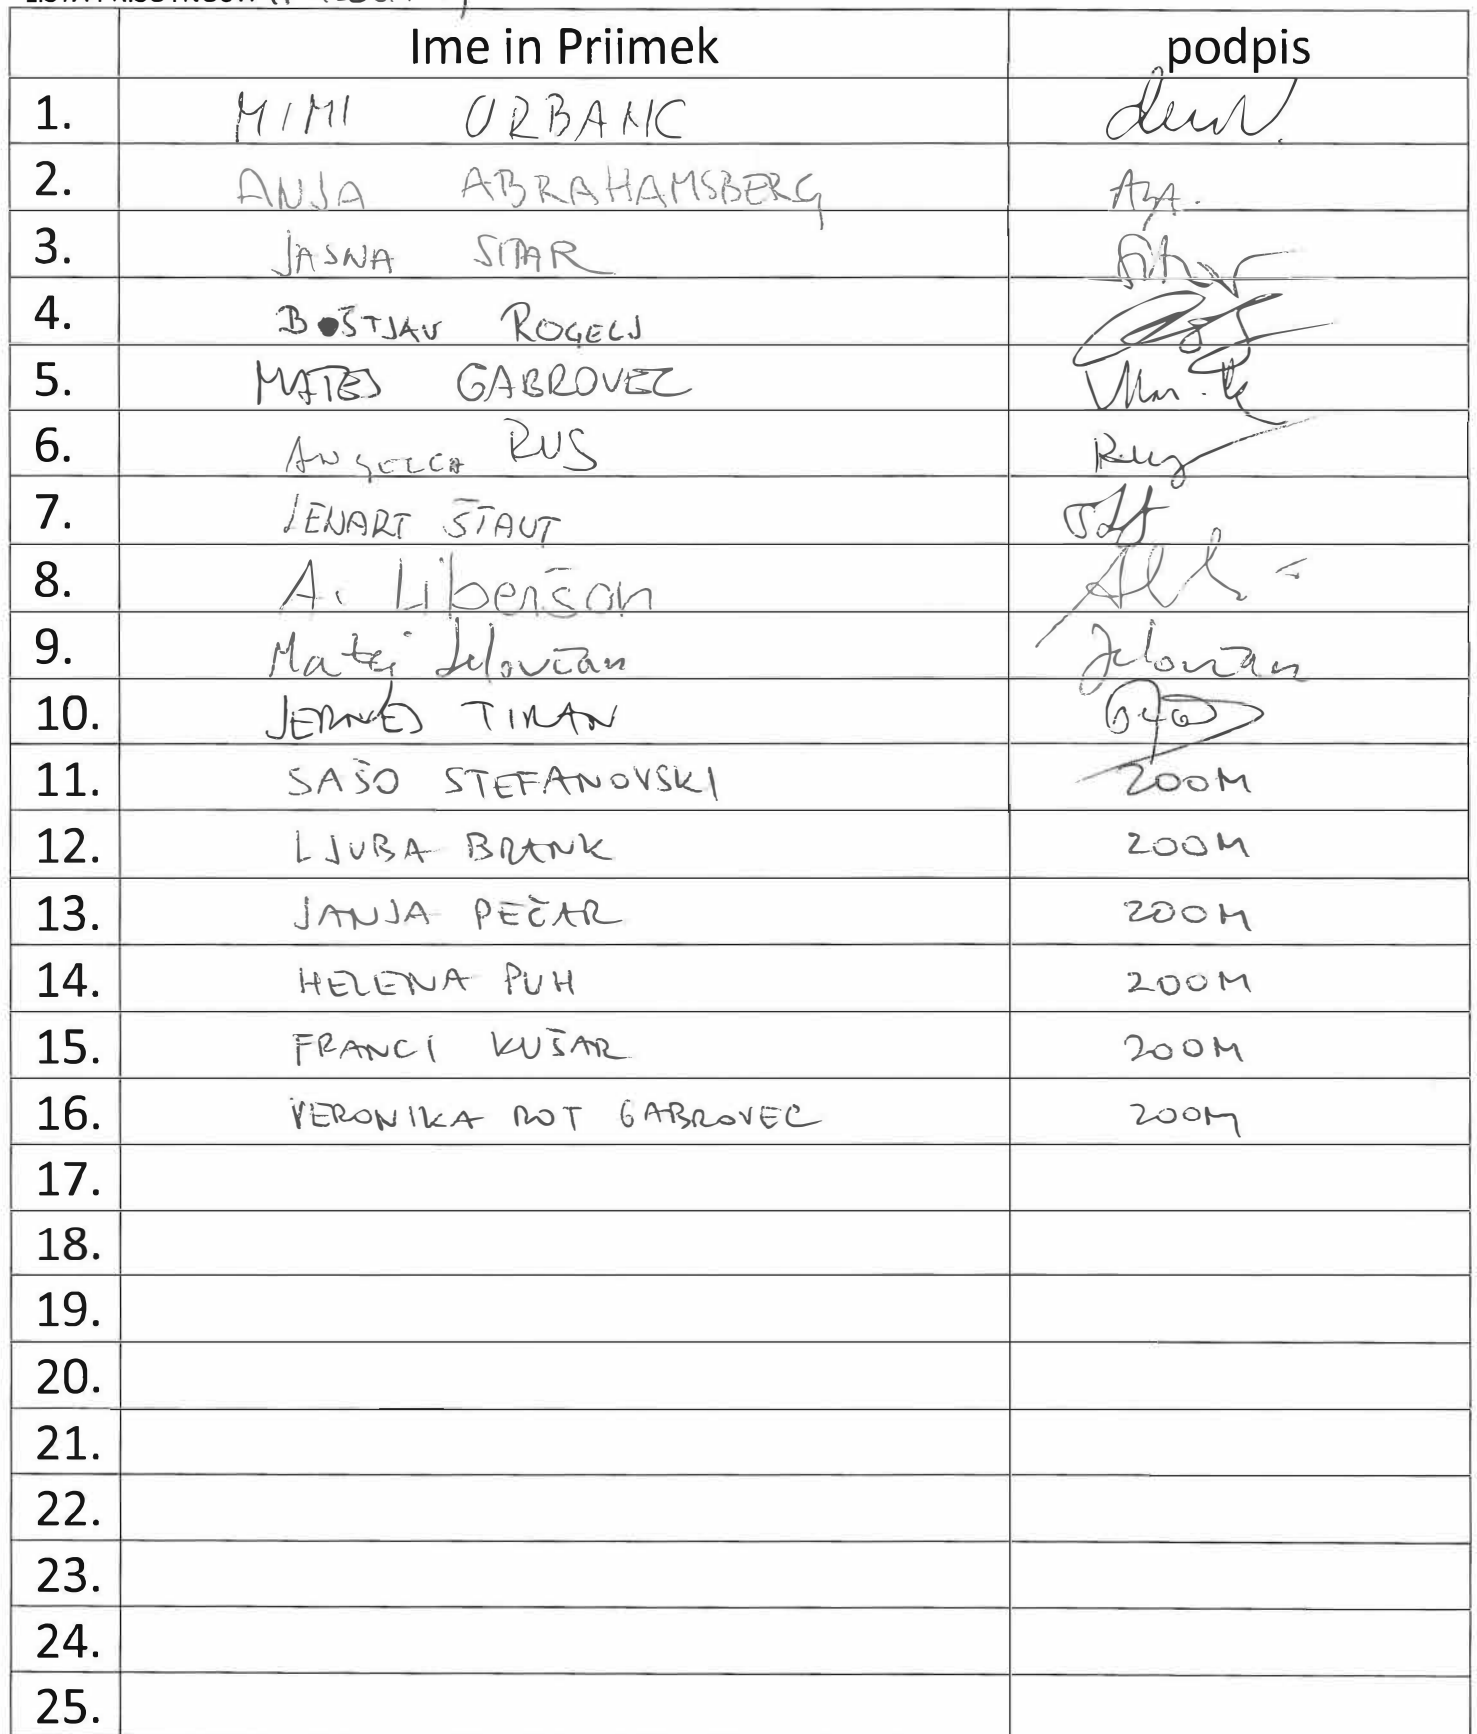 Ime in Priimek podpis
1. MIMI URBANC
2. ANJA ABRAHAMSBERG
3. JASNA SITAR
4. BOŠTJAN ROGELJ
5. MATEJ GABROVEC
6. ANGELCA RUS Rus
7. LENART ŠTAUT
8. A. Liberšan
9. Matej Jelovčan Jelovčan
10. JERNEJ TIRAN
11. SAŠO STEFANOVSKI ZOOM
12. LJUBA BRANK ZOOM
13. JANJA PEČAR ZOOM
14. HELENA PUH ZOOM
15. FRANCI KUŠAR ZOOM
16. VERONIKA ROT GABROVEC ZOOM
17.
18.
19.
20.
21.
22.
23.
24.
25.